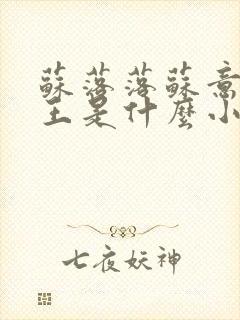 蘇落落蘇意
王是什麼小
七夜妖神